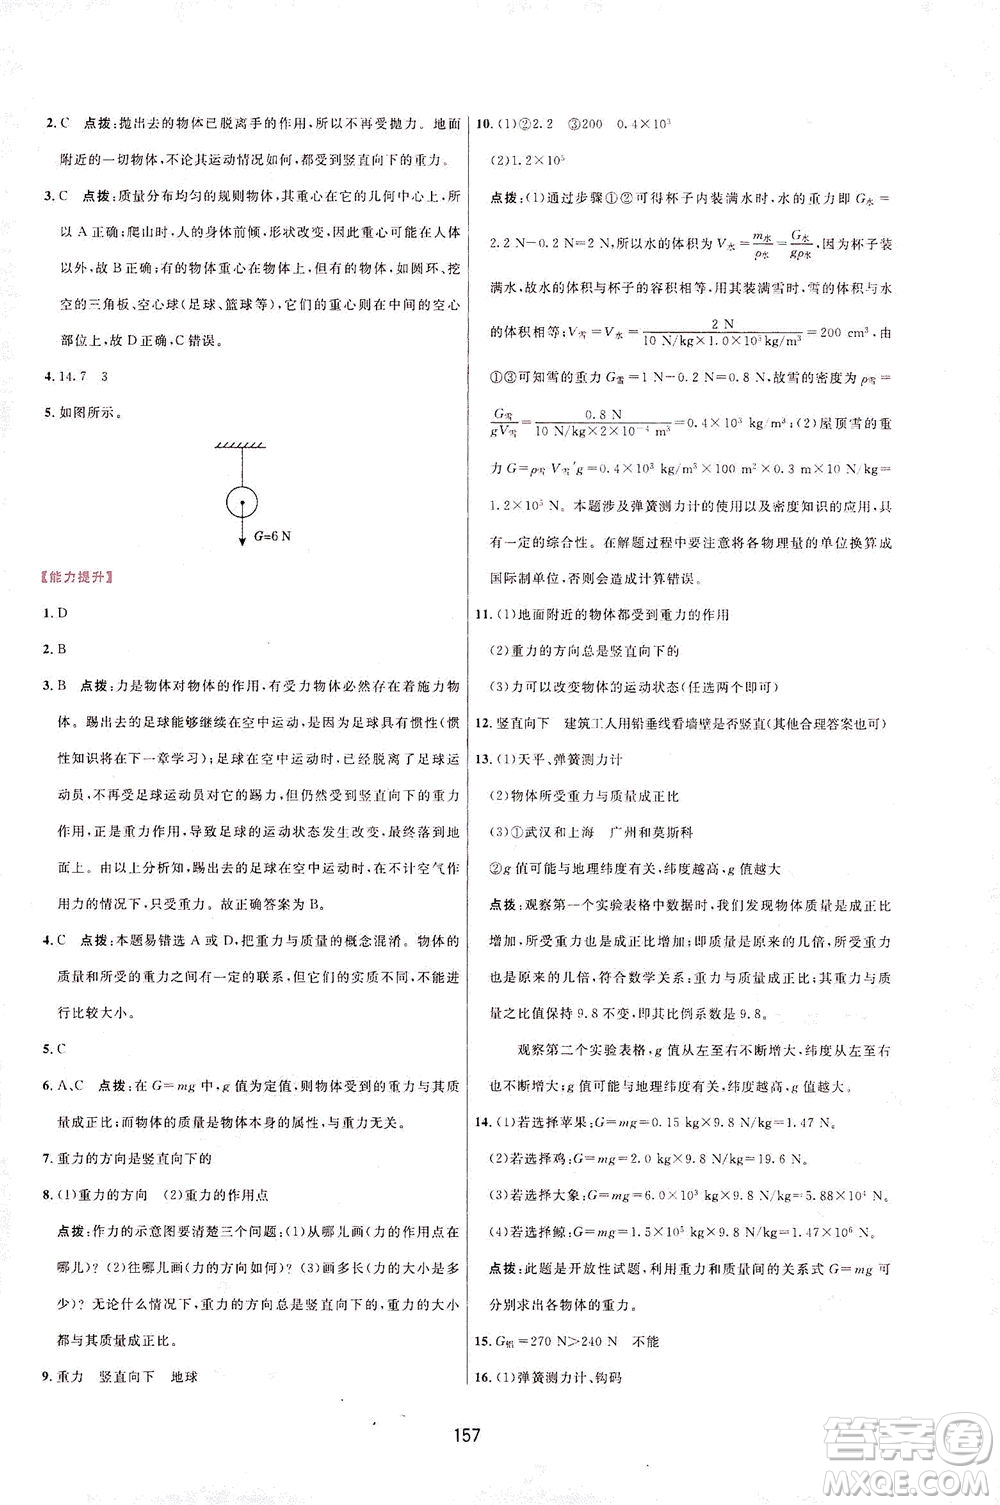 2. C 点拨:抛出去的物体已脱离手的作用,所以不再受抛力。地面
附近的一切物体,不论其运动情况如何,都受到竖直向下的重力。
3. C 点拨:质量分布均匀的规则物体,其重心在它的几何中心上,所
以 A 正确;爬山时,人的身体前倾,形状改变,因此重心可能在人体
以外,故 B 正确;有的物体重心在物体上,有的物体,如圆环、挖
空的三角板、空心球(足球、篮球等),它们的重心在中间的空心
部位上,故 D 正确,C 错误。
4. 14.7 3
5. 如图所示。
G=6 N
【能力提升】
1. D
2. B
3. B 点拨:力是物体对物体的作用,有受力物体必然存在着施力物
体。踢出去的足球能够继续在空中运动,是足球具有惯性(惯
性知识将在下一章学习);足球在空中运动时,由于足球远离运
动员,不再受足球运动员对它的踢力,但仍然受竖直向下的重力
作用,正是重力作用,导致足球的运动状态发生改变,最终落到地
面上。由以上分析知,踢出去的足球在空中运动时,在不计空气作
用力的情况下,只受重力。故正确答案为 B。
4. C 点拨:本题易错选 A 或 D,把重力与质量的概念混淆。物体的
质量和所受的重力之间有一定的联系,但它们的实质不同,不能进
行比较大小。
5. C
6. A、C 点拨:在 G=mg 中,g 值为定值,则物体受到的重力与其质
量成正比;而物体的质量是物体本身的属性,与其重力无关。
7. 重力的方向是竖直向下的
8. (1)重力的方向 (2)重力的作用点
点拨:作力的示意图要清楚三个问题:(1)从哪儿画(力的作用点在
哪儿)? (2)往哪儿画(力的方向如何)? (3)画多长(力的大小是多
少)? 无论什么情况下,重力的方向总是竖直向下的,重力的大小
都与其质量成正比。
9. 重力 竖直向下 地球
10. (1)②2.2 ③200 0.4×10³
(2)1.2×10⁵
点拨:(1)通过步骤①②可得杯子内装满水时,水的重力即 G水=
2.2 N-0.2 N=2 N,所以水的体积为 V水=m水/ρ水=G水/gρ水,因为杯子装
满水,故水的体积与杯子的容积相等,用其装满雪时,雪的体积与水
的体积相等;V雪=V水=2 N/(10 N/kg×1.0×10³ kg/m³)=200 cm³,由
①③可知雪的重力 G雪=1 N-0.2 N=0.8 N,故雪的密度为 ρ雪=
G雪/gV雪=0.8 N/(10 N/kg×2×10⁻⁴ m³)=0.4×10³ kg/m³;(2)屋顶雪的重
力 G=ρ雪V雪′g=0.4×10³ kg/m³×100 m²×0.3 m×10 N/kg=
1.2×10⁵ N。本题涉及弹簧测力计的使用以及密度知识的应用,具
有一定的综合性。在解题过程中要注意将各物理量的单位换算成
国际制单位,否则会造成计算错误。
11. (1)地面附近的物体都受到重力的作用
(2)重力的方向总是竖直向下的
(3)力可以改变物体的运动状态(任选两个即可)
12. 竖直向下 建筑工人用铅垂线看墙壁是否竖直(其他合理答案也可)
13. (1)天平、弹簧测力计
(2)物体所受重力与质量成正比
(3)①武汉和上海 广州和莫斯科
②g 值可能与地理纬度有关,纬度越高,g 值越大
点拨:观察第一个实验表格中数据时,我们发现物体质量是成正比
增加,所受重力也成正比增加:即质量是原来的几倍,所受重力也
是原来的几倍,符合数学关系:重力与质量成正比;重力与质量的
比值保持 9.8 不变,即其比例系数是 9.8。
观察第二个实验表格,g 值从左至右不断增大,纬度从左至右
也不断增大,所以 g 值可能与地理纬度有关,纬度越高,g 值越大。
14. (1)若选择苹果:G=mg=0.15 kg×9.8 N/kg=1.47 N。
(2)若选择鸡:G=mg=2 kg×9.8 N/kg=19.6 N。
(3)若选择大象:G=mg=6.0×10³ kg×9.8 N/kg=5.88×10⁴ N。
(4)若选择鲸:G=mg=1.5×10⁵ kg×9.8 N/kg=1.47×10⁶ N。
点拨:此题是开放性试题,利用重力和质量间的关系式 G=mg 可
分别求出各物体的重力。
15. G铝=270 N>240 N 不能
16. (1)弹簧测力计、钩码
157
答案圈
MXQE.COM